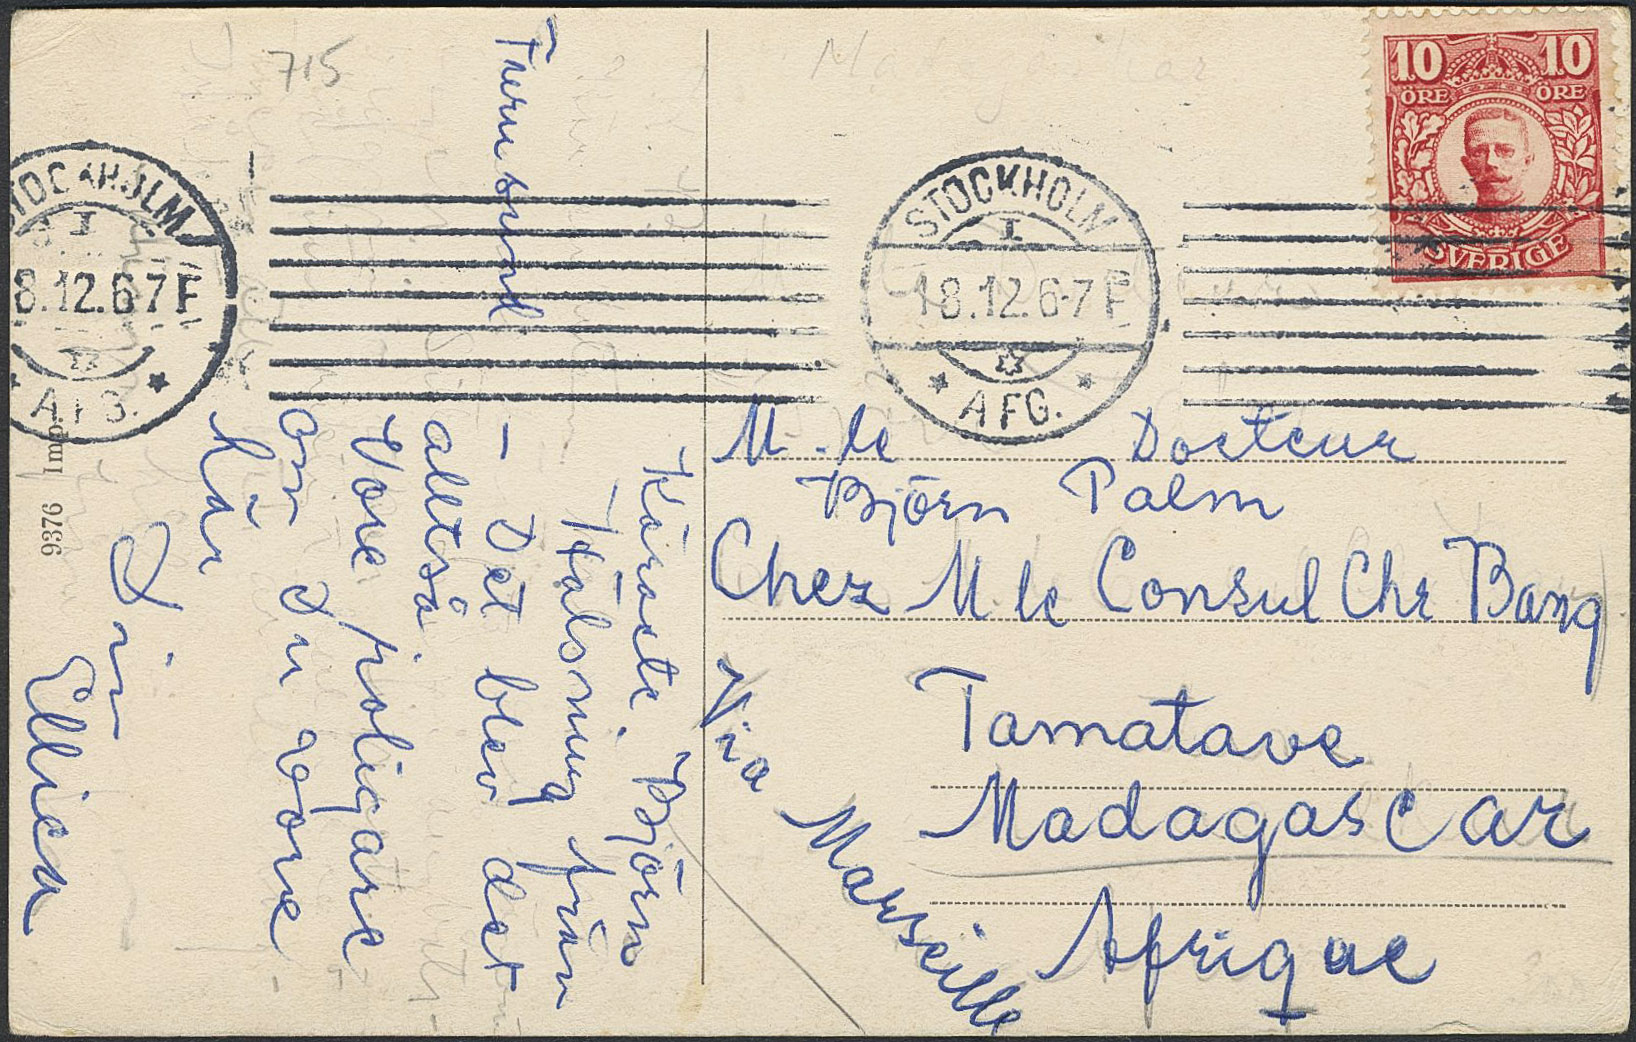 715
Furusund
Käraste Björn
- Hälsning från
- Det blev det
alltså
Vore roligare
om Du vore
här
Din
Ellica
9376 Imp.
STOCKHOLM
1
8.12.6-7 F
AFG.
STOCKHOLM
1
18.12.6-7 F
AFG.
10 10
ÖRE ÖRE
SVERIGE
M. le Docteur
Björn Palm
Chez M le Consul Chr Bang
Tamatave
Madagascar
Afrique
Via Marseille